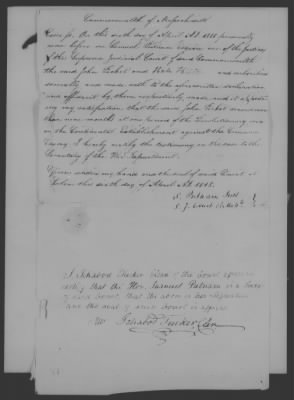 Commonwealth of Massachusetts
Essex ss. On this sixth day of April AD. 1818. personally
came before me Samuel Putnam Esquire one of the justices
of the Supreme Judicial Court of said Commonwealth
the said John Picket and and subscribed
severally and made oath to the aforewritten declaration
and affidavit by them respectively made and it appearing
to my satisfaction that the said John Picket served more
than nine months at one term of the Revolutionary war
in the Continental Establishment against the Common
Enemy I hereby certify the testimony in the case to the
Secretary of the War Department.
Given under my hand and the seal of said Court at
Salem this sixth day of April AD. 1818.
S. Putnam Just
S. J. Court
I Ichabod Tucker Clerk of the Court aforesaid
certify that the Hon. Samuel Putnam is a Justice
of said Court, that the above is his signature
and the seal of said Court is affixed
Attr Ichabod Tucker Cler